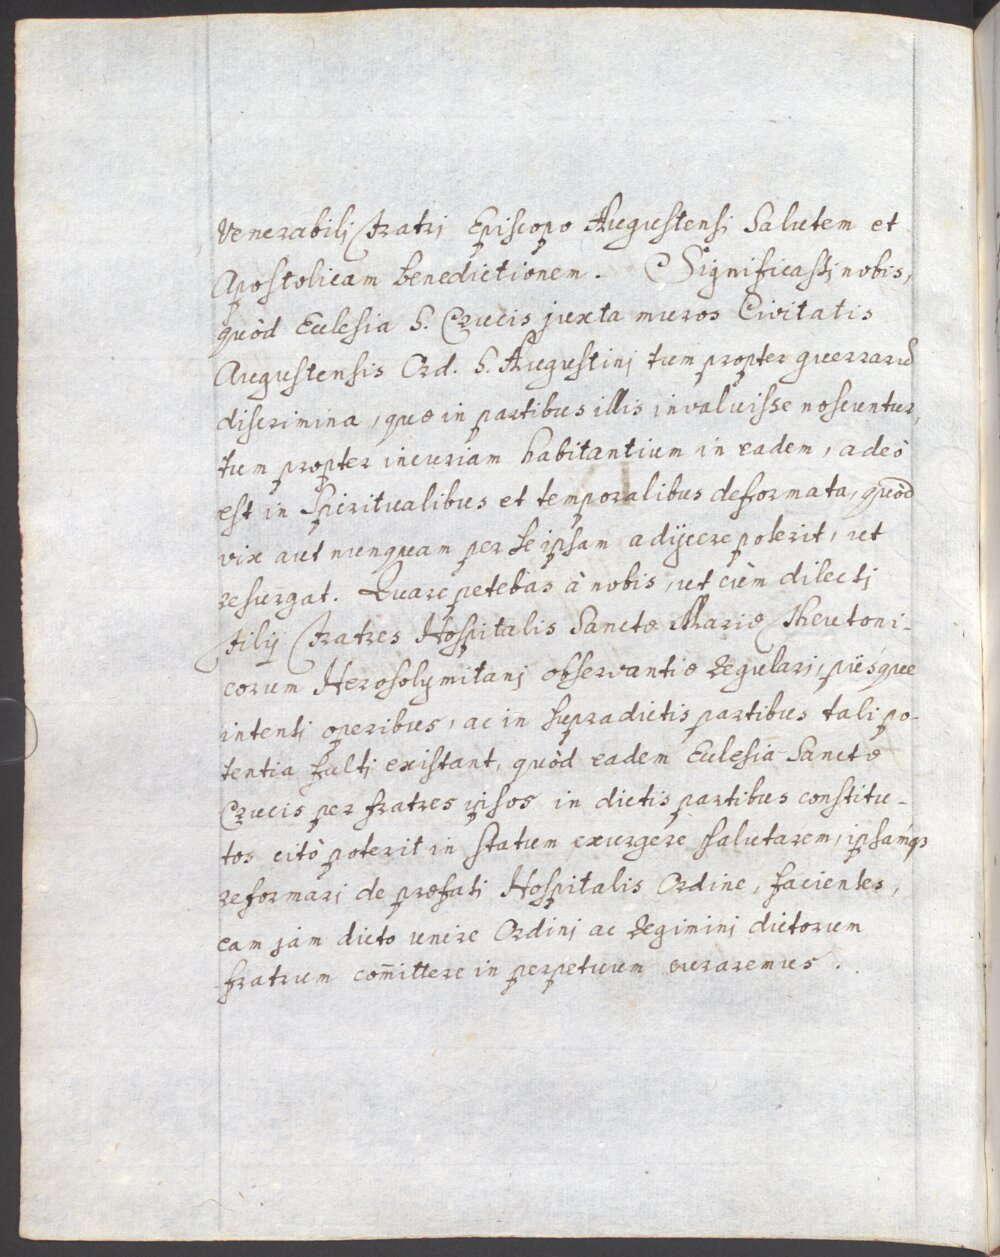 Venerabilj Fratrj Episcopo Augustensj Salutem et
Apostolicam benedictionem. Significastj nobis,
quòd Ecclesia S. Crucis juxta muros Civitatis
Augustensis Ord. S. Augustinj tum propter guerrarū
discrimina, quæ in partibus illis invaluisse noscuntur,
tum propter incuriam habitantium in eadem, adeò
est in Spiritualibus et temporalibus deformata, quòd
vix aut nunquam per se ipsam adijcere poterit, ut
resurgat. Quare petebas à nobis, ut cùm dilectj
filij Fratres Hospitalis Sanctæ Mariæ Theutoni-
corum Hierosolymitanj observantiæ Regularj, pijsque
intentj operibus, ac in supradictis partibus tali po-
tentia fultj existant, quòd eadem Ecclesia Sanctæ
Crucis per fratres ipsos in dictis partibus constitu-
tos citò poterit in statum exurgere salutarem, ipsamqȝ
reformarj de præfatj Hospitalis Ordine, facientes,
eam jam dicto unire Ordinj ac Regiminj dictorum
fratrum com̄ittere in perpetuum curaremus.